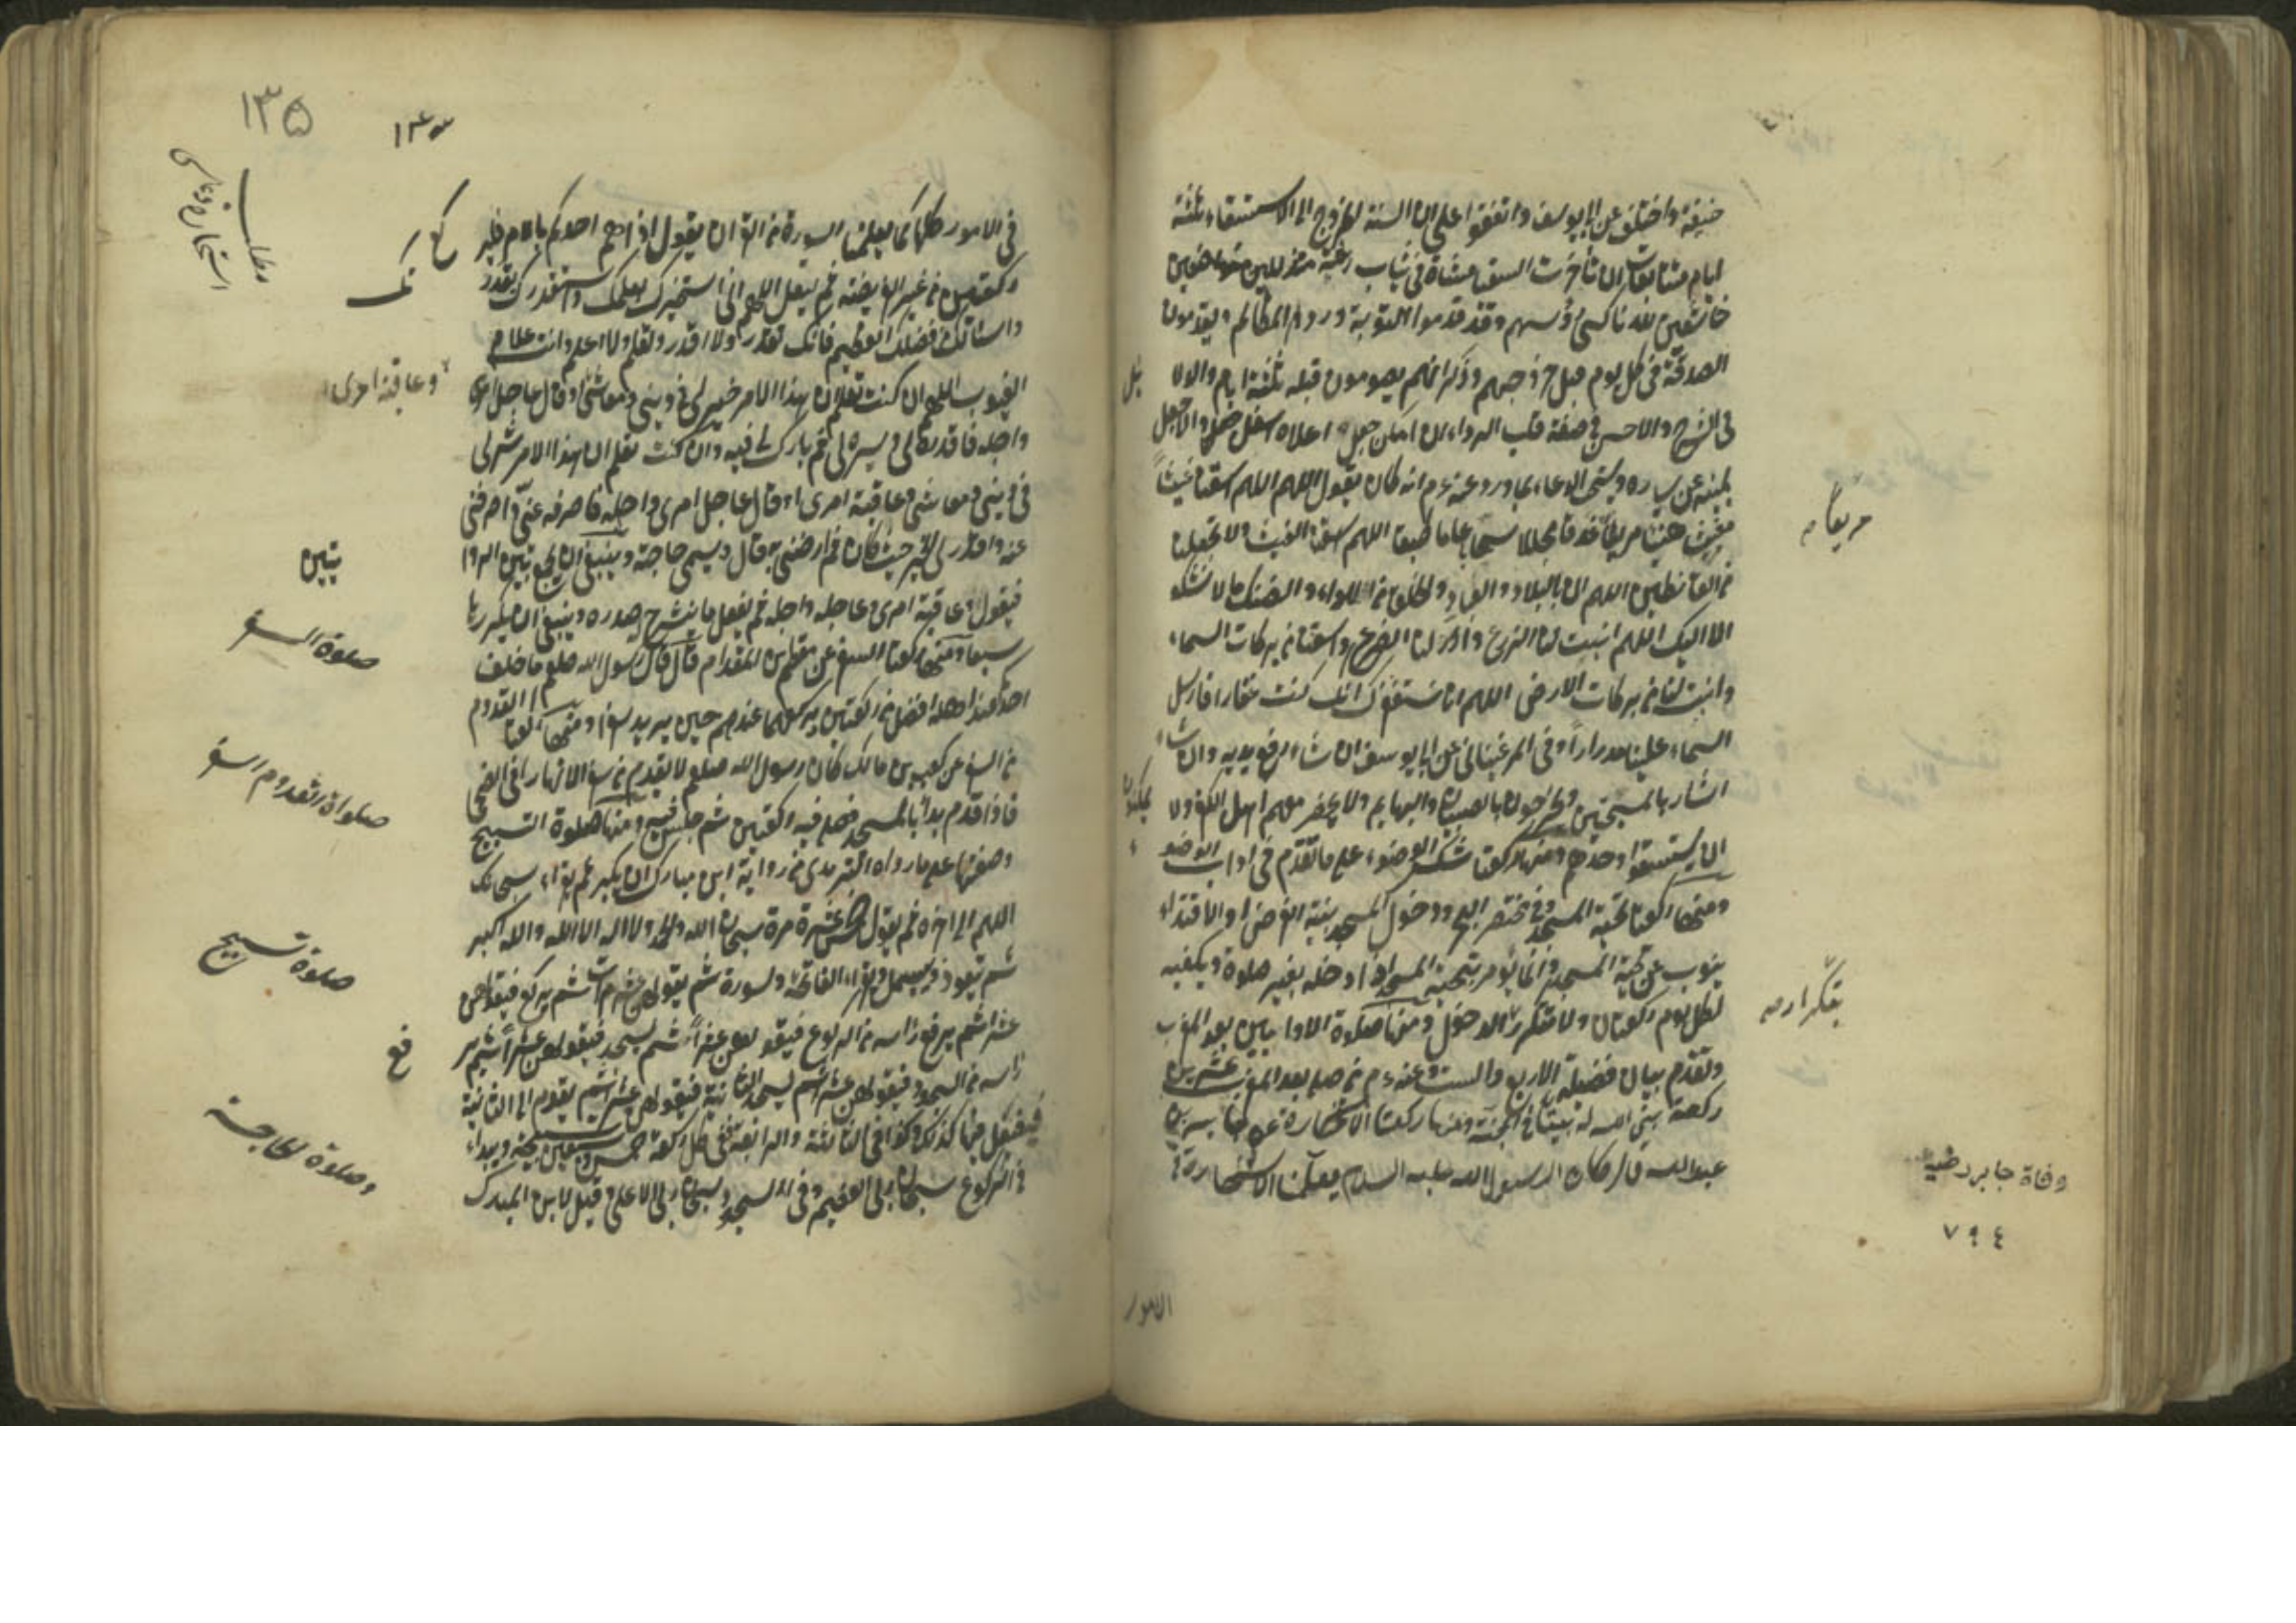 حنيفة واختلف عن ابي يوسف واتفقوا على ان السنة الخروج الى الاستسقاء ثلثة
ايام متتابعات ان تأخرت السقيا مشاة في ثياب متذللين متواضعين
خاشعين لله ناكسي رؤسهم وقد قدموا التوبة ورد المظالم ويقدمون
الصدقة في كل يوم قبل خروجهم وذكر انهم يصومون قبله ثلثة ايام والاولى
في الشرح والاحسن في صفة قلب الرداء ان امكن جعل اعلاه اسفل فعل والا جعل
يمينه عن يساره ويستحب الدعاء بما ورد وعنه ءم انه كان يقول اللهم اسقنا غيثا
مغيثا هنيئا مريئا غدقا مجللا سحا عاما طبقا اللهم اسقنا الغيث ولا تجعلنا
من القانطين اللهم ان بالبلاد والعباد والخلق من اللاواء والضنك ما لا نشكو
الا اليك اللهم انبت لنا الزرع وادر لنا الضرع واسقنا من بركات السماء
وانبت لنا من بركات الارض اللهم انا نستغفرك انك كنت غفارا فارسل
السماء علينا مدرارا وفي المرغيناني عن ابي يوسف ان شاء رفع يديه وان شاء
اشار بالمسبحتين ويخرجون بالصبيان والبهايم ولا يحضر معهم اهل الكفر ولا
ان يستسقوا وحدهم ومنها ركعتا شكر الوضوء على ما تقدم في اداب الوضوء
ومنها ركعتا تحية المسجد وفي مختصر البحر ودخول المسجد بنية الفرض او الاقتداء
ينوب عن تحية المسجد وانما يؤمر بتحية المسجد اذا دخله بغير صلوة ويكفيه
لكل يوم ركعتان ولا تتكرر الدخول ومنها صلوة الاوابين بعد المغرب
وتقدم بيان فضيلة الاربع والست وعنه ءم من صلى بعد المغرب عشرين
ركعة بنى الله له بيتا في الجنة ومنها ركعتا الاستخارة عن جابر بن
عبد الله قال كان رسول الله عليه السلام يعلمنا الاستخارة
الامور
بتكرار صه
وفاة جابر رضيه
٧٩٤
١٣٥
في الامور كلها كما يعلمنا السورة من القرآن يقول اذا هم احدكم بالامر فليركع
ركعتين من غير الفريضة ثم ليقل اللهم اني استخيرك بعلمك واستقدرك بقدرتك
واسئلك من فضلك العظيم فانك تقدر ولا اقدر وتعلم ولا اعلم وانت علام
الغيوب اللهم ان كنت تعلم ان هذا الامر خير لي في ديني ومعاشي او قال عاجل امري
وعاقبة امري
واجله فاقدره لي ويسره لي ثم بارك لي فيه وان كنت تعلم ان هذا الامر شر لي
في ديني ومعاشي وعاقبة امري او قال عاجل امري واجله فاصرفه عني واصرفني
عنه واقدر لي الخير حيث كان ثم ارضني به قال ويسمي حاجته وينبغي ان يجمع بين الروا
يتين
فيقول وعاقبة امري وعاجله واجله ثم يفعل ما ينشرح له صدره وينبغي ان يكررها
صلوة السفر
سبعا ومنها ركعتا السفر عن مقطم بن المقدام قال قال رسول الله صلعم ما خلف
احد عند اهله افضل من ركعتين يركعهما عندهم حين يريد سفرا ومنها ركعتا القدوم
صلواة القدوم السفر
من السفر عن كعب بن مالك كان رسول الله صلعم لا يقدم من سفر الا نهارا في الضحى
فاذا قدم بدأ بالمسجد فصلى فيه ركعتين ثم جلس فيه ومنها صلوة التسبيح
وصفتها على ما رواه الترمذي من رواية ابن مبارك ان يكبر ثم يقراء سبحانك
صلوة تسبيح
اللهم الى اخره ثم يقول خمس عشرة مرة سبحان الله والحمد لله ولا اله الا الله والله اكبر
ثم يتعوذ ويبسمل ويقراء الفاتحة وسورة ثم يقولهن عشر مرات ثم يركع فيقولهن
عشرا ثم يرفع راسه من الركوع فيقولهن عشرا ثم يسجد فيقولهن عشرا ثم يرفع
راسه من السجود فيقولهن عشرا ثم يسجد الثانية فيقولهن عشرا ثم يقوم الى الثانية
وصلوة الحاجة
فيفعل فيها كذلك وكذا في الثالثة والرابعة ففي كل ركعة خمس وسبعين تسبيحة ويبداء
في الركوع سبحان ربي العظيم وفي السجود سبحان ربي الاعلى قيل لابن المبارك